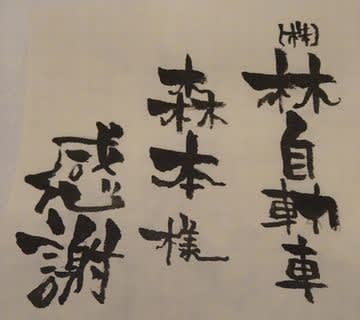 [株]林自動車
森本様
感謝